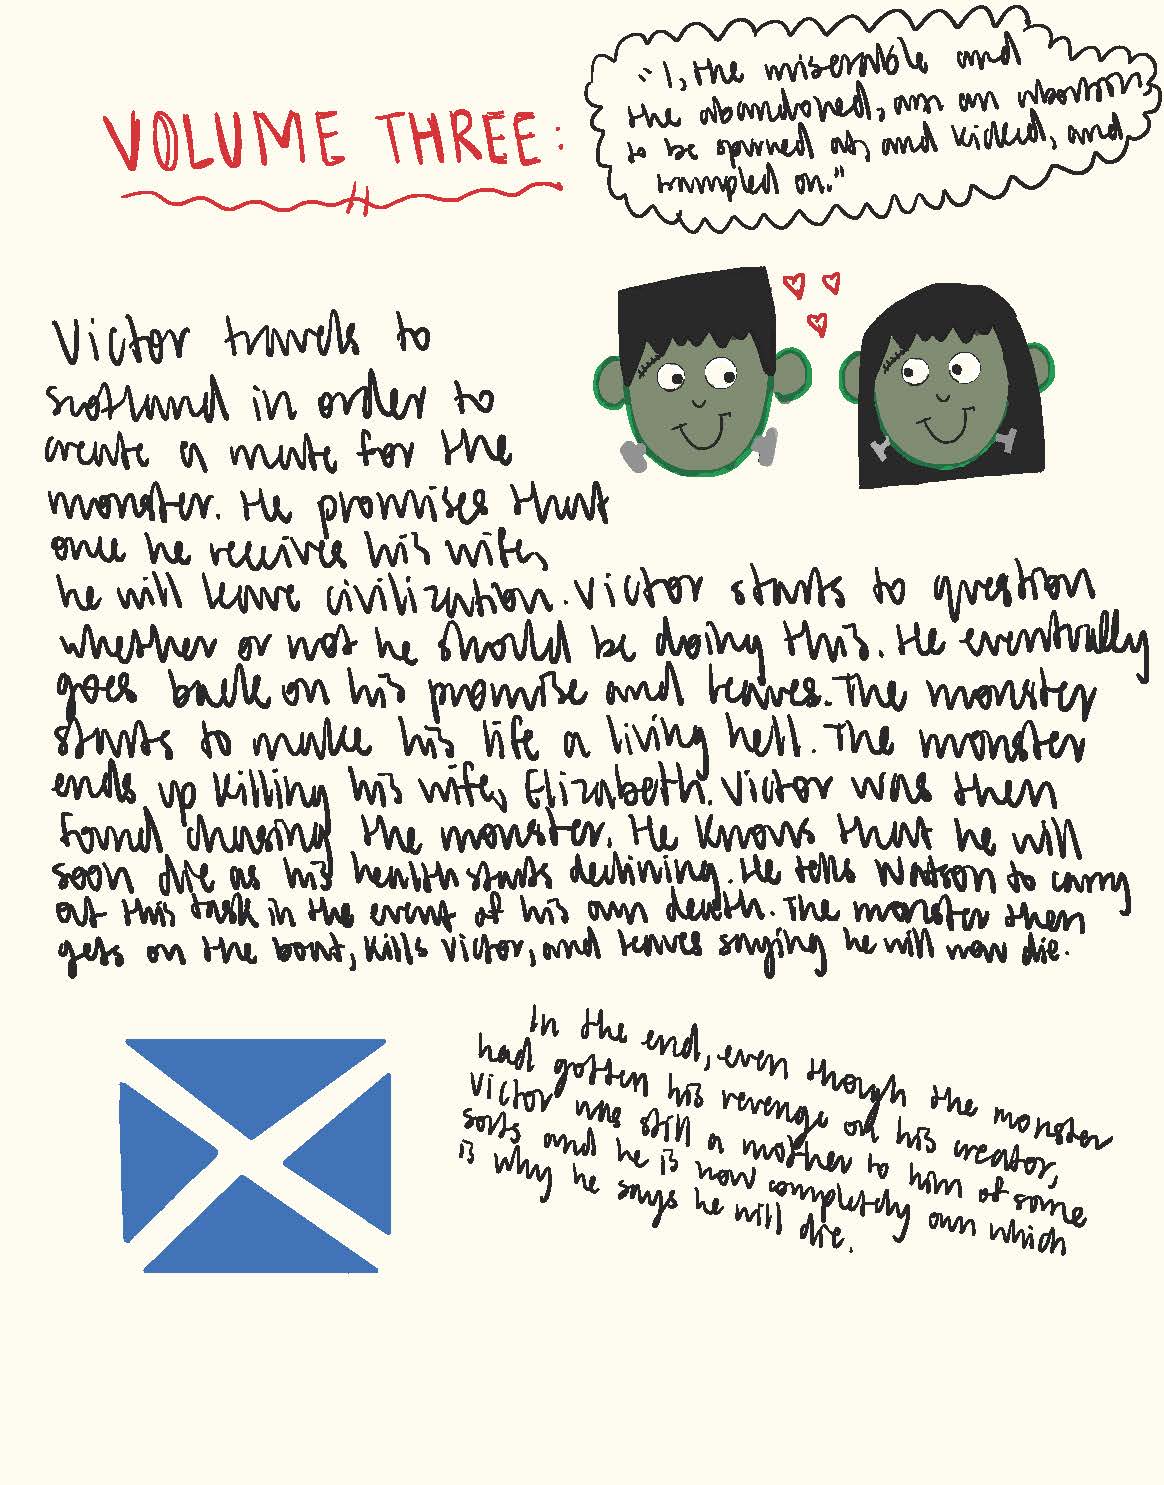 VOLUME THREE:
"I, the miserable and
the abandoned, am an abortion
to be spurned at, and kicked, and
trampled on."
Victor travels to
Scotland in order to
create a mate for the
monster. He promises that
once he receives his wife,
he will leave civilization. Victor starts to question
whether or not he should be doing this. He eventually
goes back on his promise and leaves. The monster
starts to make his life a living hell. The monster
ends up killing his wife, Elizabeth. Victor was then
found chasing the monster. He knows that he will
soon die as his health starts declining. He tells Watson to carry
out this task in the event of his own death. The monster then
gets on the boat, kills Victor, and leaves saying he will now die.
In the end, even though the monster
had gotten his revenge on his creator,
Victor was still a mother to him of some
sorts and he is now completely own which
is why he says he will die.